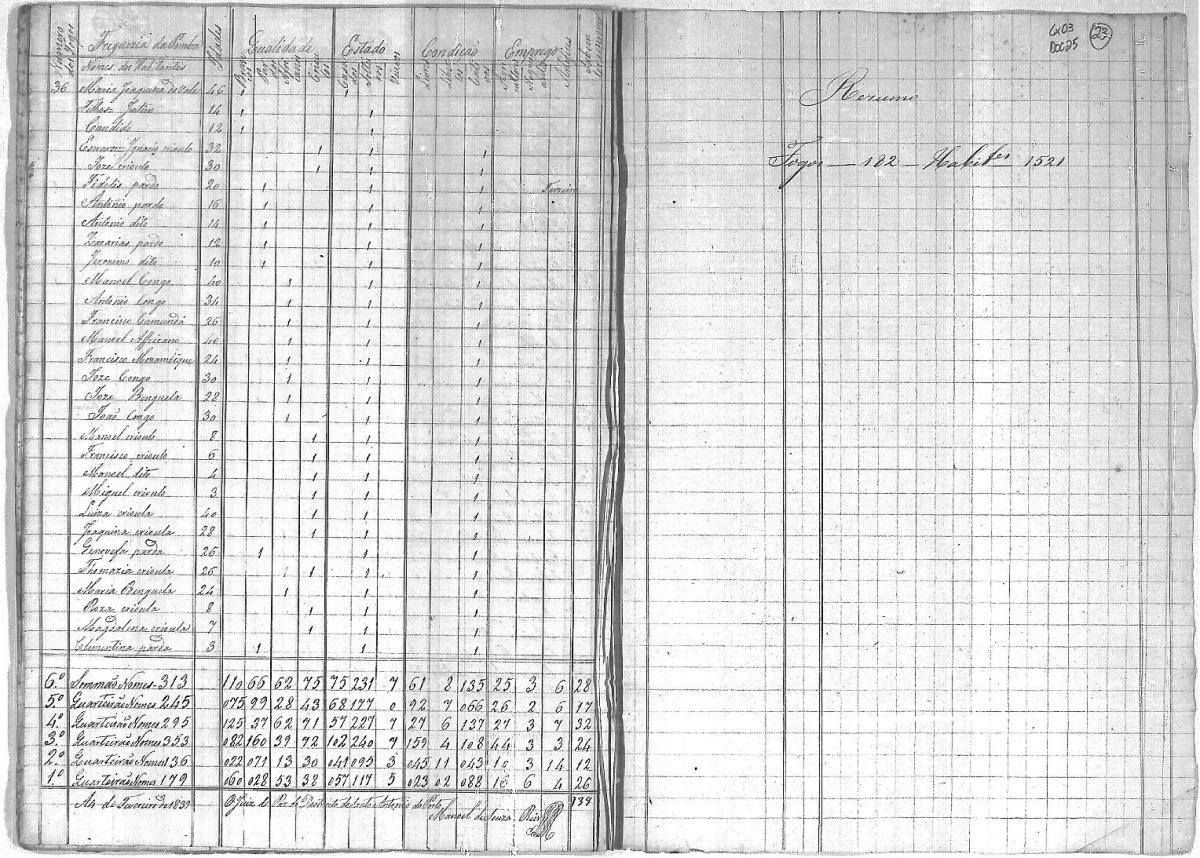 Numero dos Fogos Freguezia da Pomba Idades Qualidade Estado Condição Emprego
Nomes dos Habitantes
36 Maria Joaquina do Vale 46 1
Filhos Justino 14 1 1
Candido 12 1 1
Escravos Ignacio crioulo 32 1 1 1
Joze crioulo 30 1 1 1
Fidelis pardo 20 1 1 1
Antonio pardo 16 1 1 1
Antonio dito 14 1 1 1
Zacarias pardo 12 1 1 1
Jeronimo dito 10 1 1 1
Manoel Congo 40 1 1 1
Antonio Congo 34 1 1 1
Francisco Camundá 26 1 1 1
Manoel Affricano 40 1 1 1
Francisco Mozambique 24 1 1 1
Joze Congo 30 1 1 1
Joze Benguela 28 1 1 1
João Congo 30 1 1 1
Manoel crioulo 8 1 1 1
Francisco crioulo 6 1 1 1
Manoel dito 4 1 1 1
Miguel crioulo 3 1 1 1
Luiza crioula 40 1 1 1
Joaquina crioula 28 1 1 1
Genovefa parda 26 1 1 1
Thomazia crioula 26 1 1 1 1
Maria Benguela 24 1 1 1
Roza crioula 8 1 1 1
Magdalena crioula 7 1 1 1
Clementina parda 3 1 1 1
6.º Sommão Nomes - 313 110 66 62 75 75 231 7 61 8 135 25 3 6 28
5.º Quarteirão Nomes 245 075 99 28 43 68 177 0 92 7 066 26 2 6 17
4.º Quarteirão Nomes 295 125 37 62 71 57 227 7 27 6 137 27 3 7 32
3.º Quarteirão Nomes 353 082 160 39 72 102 240 7 159 4 108 44 3 3 24
2.º Quarteirão Nomes 136 022 071 13 30 041 093 3 045 11 043 10 3 14 12
1.º Quarteirão Nomes 179 060 028 53 38 057 117 5 023 02 088 16 6 4 26
139
A 4 de Fevereiro de 1839 O Juiz de Paz do Destricto de Santo Antonio do Porto
Manoel de Souza
Cx03
DOC25
23
Rezumo
Fogos — 182 — Habites 1521